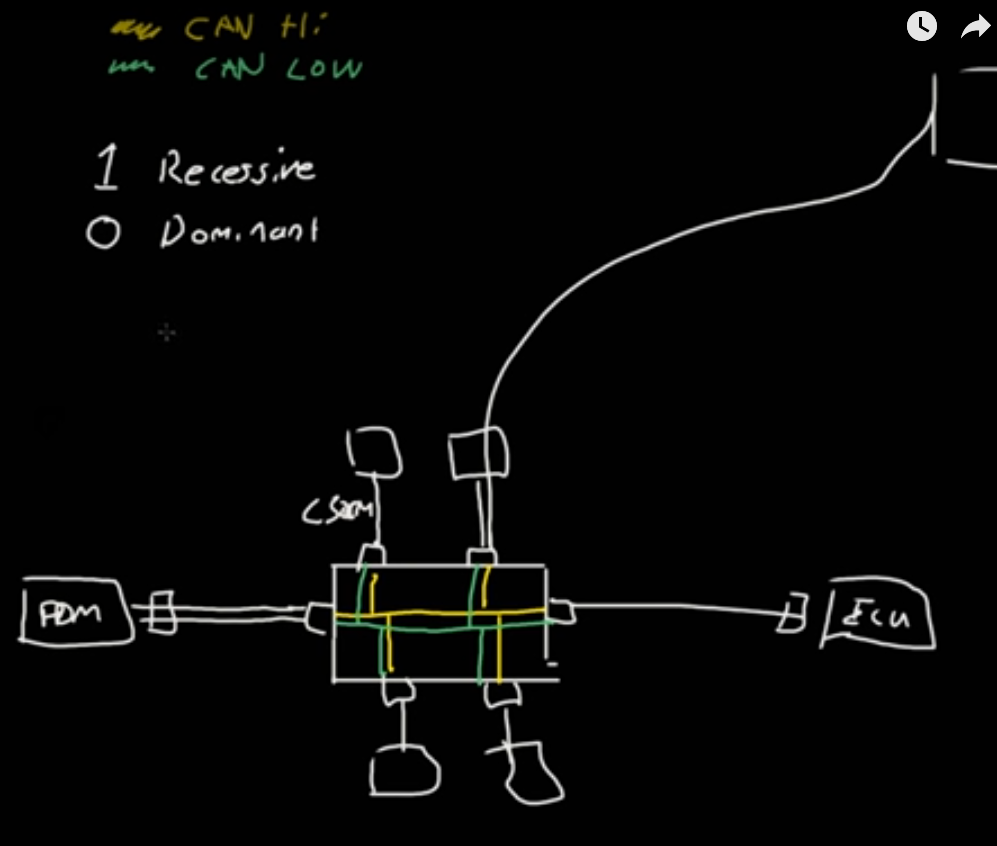 CAN Hi
CAN LOW
1 Recessive
0 Dominant
PDM
ECU